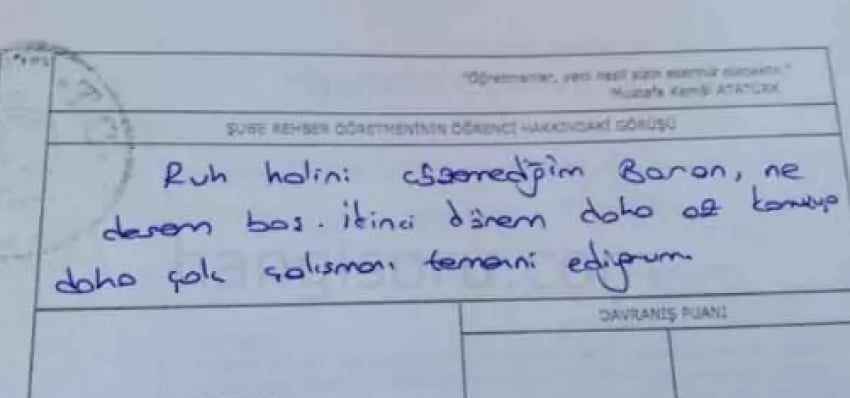 "Öğretmenler, yeni nesil sizin eseriniz olacaktır."
Mustafa Kemal ATATÜRK
ŞUBE REHBER ÖĞRETMENİNİN ÖĞRENCİ HAKKINDAKİ GÖRÜŞÜ
Ruh halini çözemediğim Baran, ne
desem boş. İkinci dönem daha az konuşup
daha çok çalışmanı temenni ediyorum.
DAVRANIŞ PUANI